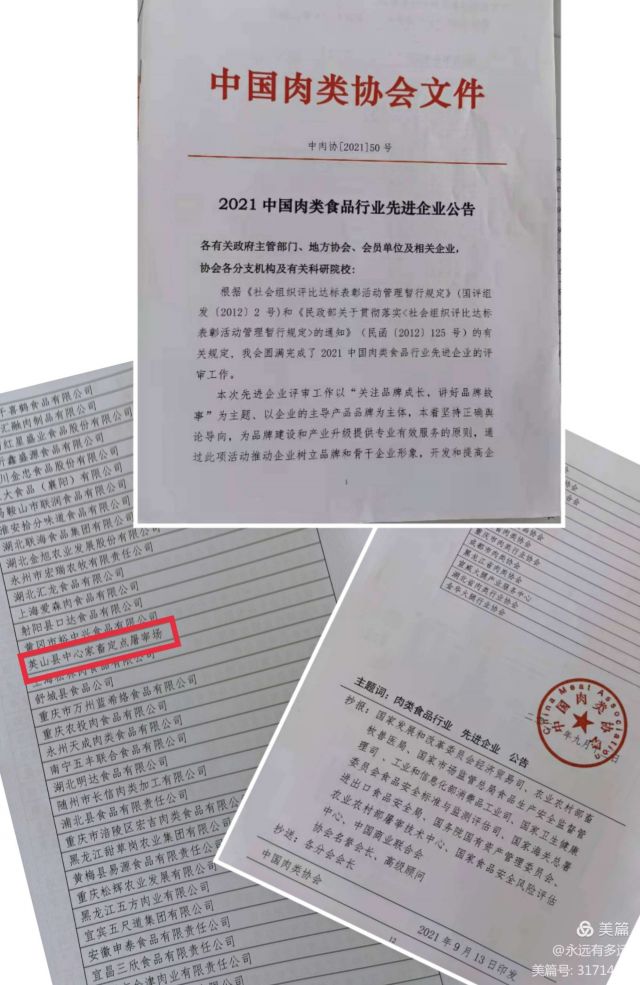 中国肉类协会文件
中肉协[2021]50 号
2021 中国肉类食品行业先进企业公告
各有关政府主管部门、地方协会、会员单位及相关企业，
协会各分支机构及有关科研院校：
根据《社会组织评比达标表彰活动管理暂行规定》(国评组
发〔2012〕2 号)和《民政部关于贯彻落实<社会组织评比达标
表彰活动管理暂行规定>的通知》（民函〔2012〕125 号）的有
关规定，我会圆满完成了 2021 中国肉类食品行业先进企业的评
审工作。
本次先进企业评审工作以“关注品牌成长，讲好品牌故
事”为主题、以企业的主导产品品牌为主体，本着坚持正确舆
论导向，为品牌建设和产业升级提供专业有效服务的原则，通
过此项活动推动企业树立品牌和骨干企业形象，开发和提高企
1
喜鹤食品有限公司
汇融肉制品有限公司
红星盛业食品股份有限公司
鑫盛源食品有限公司
川金忠食品股份有限公司
大食品（襄阳）有限公司
马鞍山市联润食品有限公司
淮安拾分味道食品有限公司
湖北联海食品集团有限公司
湖北金旭农业发展股份有限公司
永州市宏瑞农牧有限责任公司
湖北汇龙食品有限公司
上海爱森肉食品有限公司
射阳县口达食品有限公司
黄冈市裕中兴食品有限公司
英山县中心家畜定点屠宰场
食品有限公司
舒城县食品公司
重庆市万州蓝希络食品有限公司
重庆农投肉食品有限公司
永州天成肉类食品有限公司
南宁五丰联合食品有限公司
湖北明达食品有限公司
随州市长信肉类加工有限公司
浦北县食品有限责任公司
重庆市涪陵区宏吉肉类食品有限公司
黑龙江甜草岗农业集团有限公司
黄梅县易源食品有限责任公司
重庆松辉农业发展有限公司
黑龙江五方肉业有限公司
宜宾五尺道集团有限公司
安徽申泰食品有限公司
宜昌三欣食品有限责任公司
津肉业有限责任公司
协会
品协会
重庆市肉类行业协会
成都市肉类协会
黑龙江省肉类协会
宣威火腿产业服务中心
湖北省肉类行业协会
金华火腿行业协会
China Meat Association
中国肉类协会
年九月
日
主题词：肉类食品行业 先进企业 公告
抄报：国家发展和改革委员会经济贸易司、农业农村部畜
牧兽医局、国家市场监管总局食品生产安全监督管
理司、工业和信息化部消费品工业司、国家卫生健康
委员会食品安全标准与监测评估司、国家海关总署
进出口食品安全局、国务院国有资产管理委员会、
农业农村部屠宰技术中心、国家食品安全风险评估
中心、中国商业联合会
抄送：协会名誉会长、高级顾问
各分会会长
中国肉类协会
2021 年 9 月 13 日印发
12
美篇
@永远有多远
美篇号: 31714